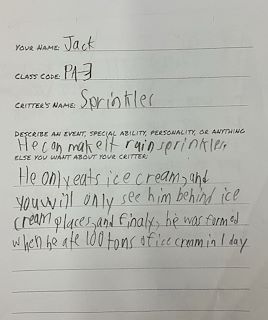 YOUR NAME: Jack
CLASS CODE: PA-3
CRITTER'S NAME: Sprinkler
DESCRIBE AN EVENT, SPECIAL ABILITY, PERSONALITY, OR ANYTHING
He can make it rain sprinkler,
ELSE YOU WANT ABOUT YOUR CRITTER:
He only eats ice cream, and
you will only see him behind ice
cream places, and finaly, he was formed
when he ate 100 tons of ice cream in 1 day